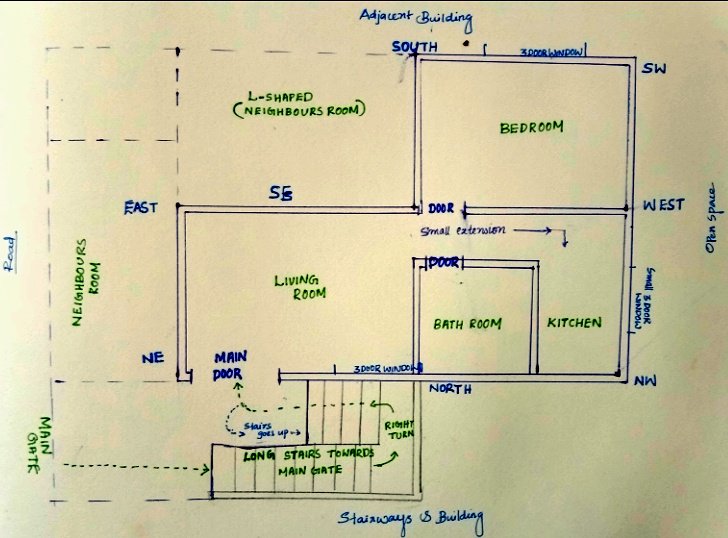 Adjacent Building
SOUTH
3 DOOR WINDOW
SW
L-SHAPED
(NEIGHBOURS ROOM)
BEDROOM
EAST
SE
DOOR
WEST
Small extension
Open Space
Road
NEIGHBOURS
ROOM
DOOR
LIVING
ROOM
Small 3 DOOR
WINDOW
BATH ROOM
KITCHEN
NE
MAIN
DOOR
3 DOOR WINDOW
NORTH
NW
MAIN
GATE
Stairs
goes up
RIGHT
TURN
LONG STAIRS TOWARDS
MAIN GATE
Stairways & Building